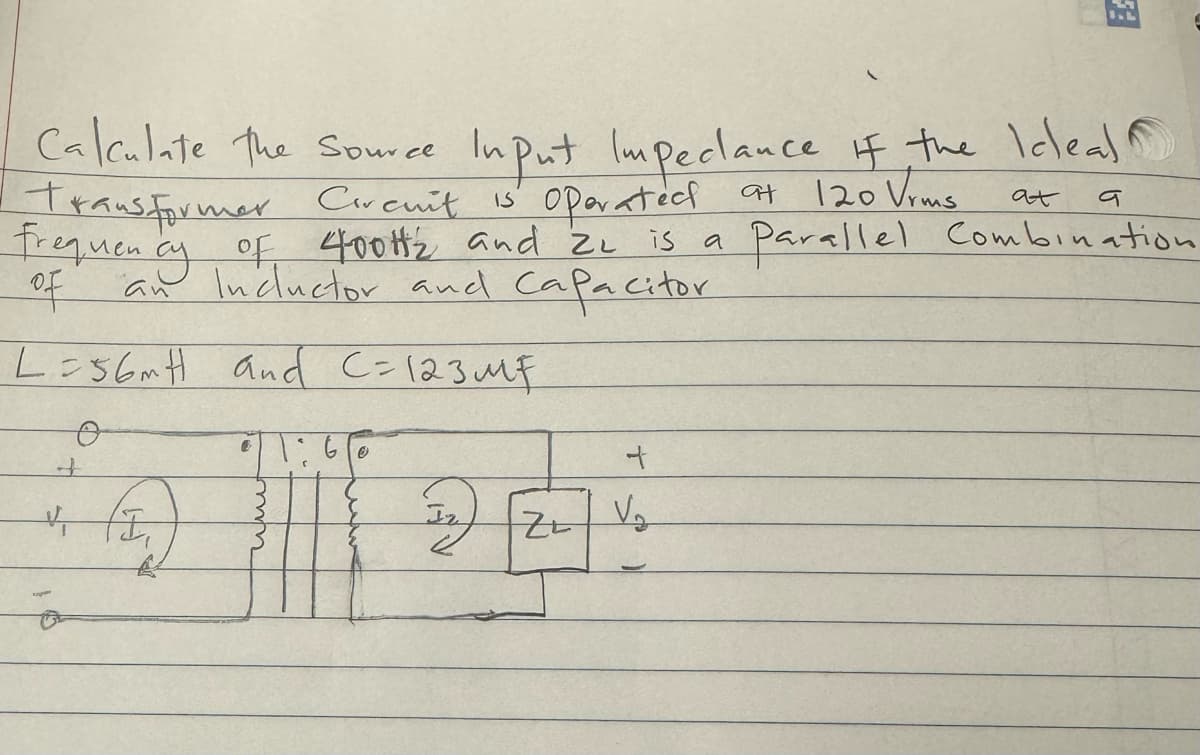 Calculate the Source Input Impedance if the Ideal
Transformer Circuit is operated at 120 Vrms at a
frequency of 400Hz and ZL is a parallel Combination
of an Inductor and Capacitor
L=56mH and C=123μF
1:6
+ +
V1 I1 I2 ZL V2
- -